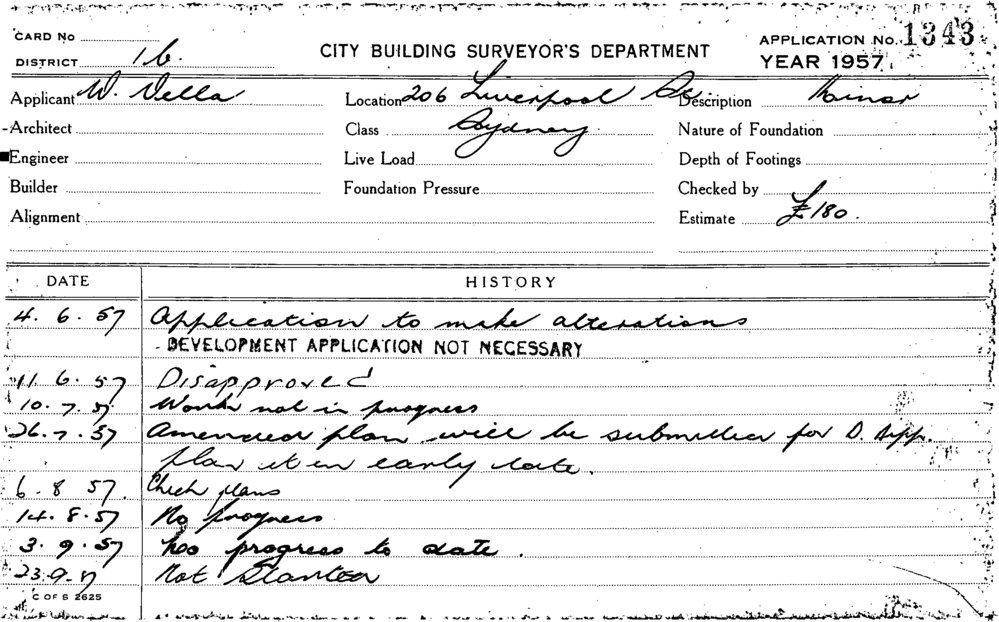 CARD No
CITY BUILDING SURVEYOR'S DEPARTMENT
APPLICATION No. 1343
DISTRICT 16.
YEAR 1957
Applicant W. Vella
Location 206 Liverpool St.
Description Minor
Architect
Class Sydney
Nature of Foundation
Engineer
Live Load
Depth of Footings
Builder
Foundation Pressure
Checked by
Alignment
Estimate £180.
DATE HISTORY
4. 6. 57 Application to make alterations
DEVELOPMENT APPLICATION NOT NECESSARY
11. 6. 57 Disapproved
10. 7. 57 Work not in progress
26. 7. 57 Amended plan will be submitted for D. App.
plan at an early date.
6. 8 57. Check plans
14. 8. 57 No progress
3. 9. 57 No progress to date.
23.9.57 Not Started
C OF S 2625